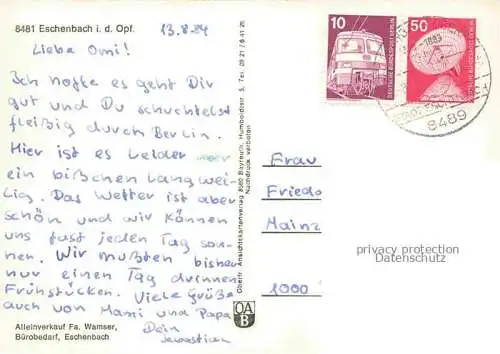 8481 Eschenbach i. d. Opf.
13.8.84
Liebe Omi!
Ich hoffe es geht Dir
gut und Du
fleißig durch Berlin.
Hier ist es leider
ein bißchen langwei-
lig. Das Wetter ist aber
schön und wir können
uns fast jeden Tag son-
nen. Wir mußten bisher
nur einen Tag drinnen
Frühstücken. Viele Grüße
auch von Mami und Papa
Dein
Sebastian
Alleinverkauf Fa. Wamser,
Bürobedarf, Eschenbach
Oberfr. Ansichtskartenverlag 8580 Bayreuth, Humboldtstr. 5, Tel. 09 21 / 6 41 26
Nachdruck verboten
OA
B
10
DEUTSCHE BUNDESPOST BERLIN
50
DEUTSCHE BUNDESPOST BERLIN
8489
Frau
Frieda
Mainz
1000
privacy protection
Datenschutz